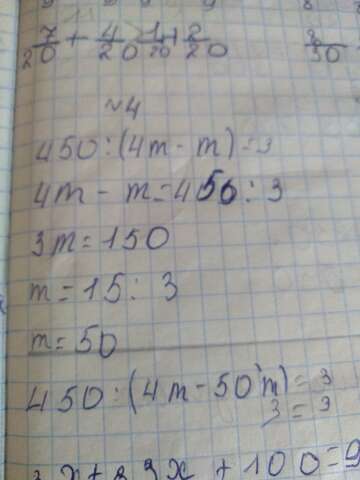 7/20 + 4/20 1/20 + 2/20
№4
450:(4m-m)=3
4m-m=450:3
3m=150
m=15:3
m=50
450:(4m-50m)=3
3=3
+100=9